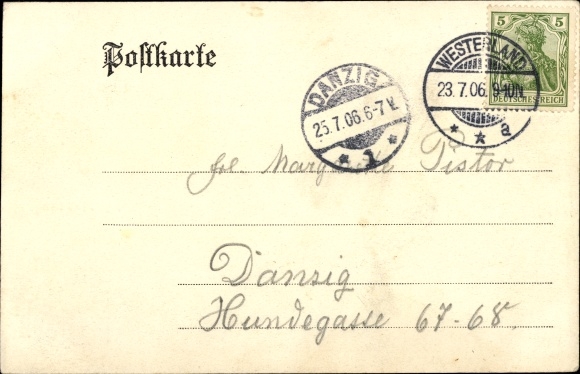 Postkarte
5 5
DEUTSCHES REICH
WESTERLAND
23.7.06. 9-10N.
* * a
DANZIG
25.7.06.6-7V.
* 1 *
Frl. Margarete Pistor
Danzig
Hundegasse 67-68.